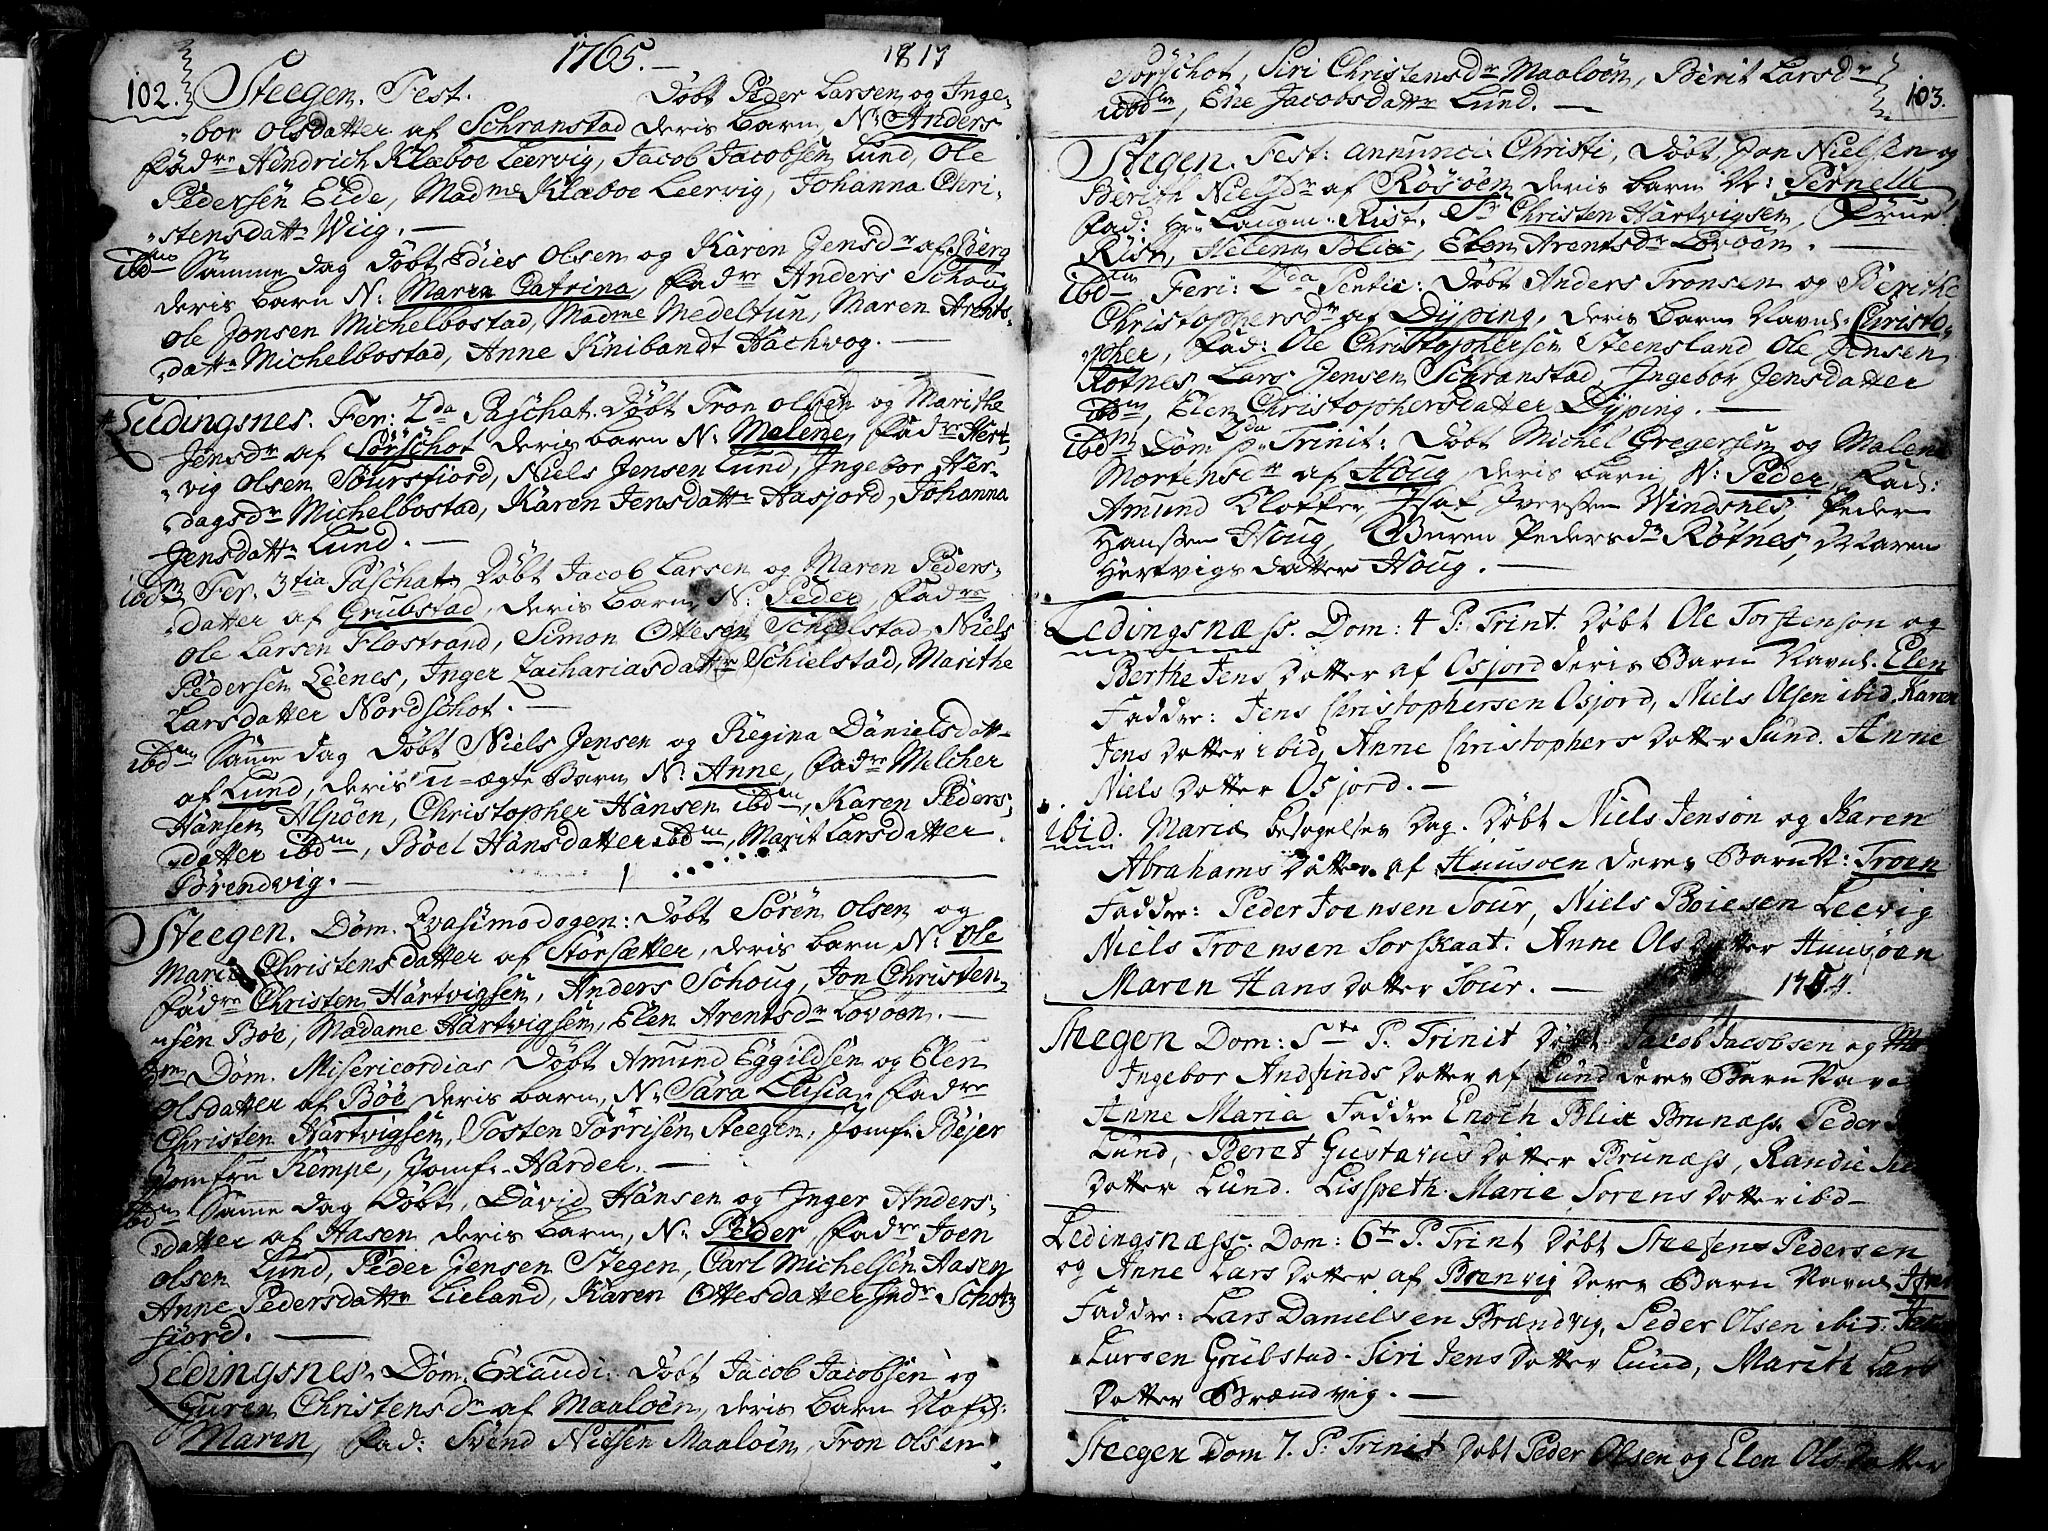 1765.
1817
102. Steegen. Fest. Döbt Peder Larsen og Inge-
bor olsdatter af Schranstad deris barn, N: Anders
Fadre Hendrich Klæboe Leervig, Jacob Jacobsen Lund, Ole
Pedersen Eide, Madme Klæboe Leervig, Johanna Chri-
stensdattr Wiig.
ibdm Samme dag döbt Edies Olsen og Karen Jensdr af Sberg
deris barn N: Maren Catrina, fadre Anders Schoug
Ole Jonsen Michelbostad, Madme Medeltun, Maren Arents-
dattr Michelbostad, Anne Knibandt Hachvog.
Leedingsnes. Fer: 2da Paschat. Döbt Tron olsen og Marithe
Jensdr af Sörschot deris barn N: Melene, Fadre Hert,
vig Olsen Soursfiord, Niels Jensen Lund, Ingebor Her-
dagsdr Michelbostad, Karen Jensdattr Aasjord, Johanna
Jensdattr Lund.
ibdm Fer. 3tia Paschat Döbt Jacob Larsen og Maren Peders-
datter af Grubstad, deris barn N: Peder, Fadre
Ole Larsen Flostrand, Simon Ottesen Schielstad, Niels
Pedersen Leenes, Inger Zachariasdattr Schielstad, Marithe
Larsdatter Nordschot.
ibdm Samme dag döbt Niels Jensen og Regina Danielsdatt-
af Lund, deris u-ægte Barn N: Anne, fadre Melcher
Hansen Alpöen, Christopher Hansen ibdm, Karen Peders-
datter ibdm, Böel Hansdatter ibdm, Marit Larsdatter
Brendvig.
Steegen. Dom. Qvasimodogen: Döbt Sören Olsen og
Maria Christensdatter af Storsætter, deris barn N: Ole
fadre Christen Hartvigsen, Anders Schoug, Jon Christen-
sen Böe, Madame Hartvigsen, Elen Arentsdr Lovöen.
Dom. Misericordias Döbt Amund Eggildsen og Elen
Olsdatter af Böe deris barn, N: Sara Lusia, fadre
Christen Hartvigsen, Tosten Torrisen Steegen, Jomfr Bejer
Jomfru Kempe, Jomfr. Harder.
ibdm Samme dag Döbt, David Hansen og Inger Anders-
datter af Hasen deris barn, N: Peder fadre Joen
olsen Lund, Peder Jensen Stegen, Carl Michelsen Aasen
Anne Pedersdattr Lieland, Karen Ottesdatter Indr Schotz
fiord.
Ledingsnes. Dom. Exaudi: Döbt Jacob Jacobsen og
Guren Christensdr af Maalöen, deris barn
Maren, fad: Svend Nielsen Maalöen, Tron Olsen
103.
Sörschot, Siri Christensdr Maaloön, Berit Larsdr
ibdm, Ene Jacobsdattr Lund.
Steegen. Fest: annunci: Christi, Döbt, Jon Nielsen og
Berith Nielsdr af Rösöen deris barn N: Pernelle
fad: Hr Laugm: Rist, Sr Christen Hartvigsen, Frue
Rist, Helena Blix, Elen Arentsdr Lovöen.
ibdm Feri: 2da Pentec: Döbt Anders Tronsen og Berithe
Christophersdr af Dyping, deris barn Navnl: Christo-
pher, fad: Ole Christophersen Steensland, Ole Jensen
Rötnes, Lars Jensen Schranstad, Ingebor Jensdatter
ibdm, Elen Christophersdatter Dyping.
ibdm Dom 2da p. Trinit: Döbt Michel Gregersen og Malene
Mortensdr af Houg, deris barn N: Peder, Fad:
Amund Kloffer, Isaf Iversen Windsnes, Peder
Hansen Houg, Guren Pedersdr Rötnes, Maren
Hertvigsdatter Houg.
Ledingsnæss. Dom: 4 P. Trint. Döbt Ole Torstenson og
Berthe Jens Datter af Osjord deris Barn Navnl. Elen
Faddre: Jens Christophersen Osjord, Niels Olsen ibid, Karen
Jens Datter ibid, Anne Christophers Datter Lund. Anne
Niels Datter Osjord.
ibid. Mariæ besögelses Dag. Döbt Niels Jenson og Karen
Abrahams Datter af Huusöen deres Barn N: Troen
Faddre: Peder Joensen Sour, Niels Boiesen Leevig
Niels Troensen Sorskaat. Anne Ols Datter Huusöen
Maren Hans Datter Sour.
Steegen Dom: 5te P. Trinit Döbt Jacob Jacobsen og
Ingebor Andfinds Datter af Lund deres Barn Navn
Anne Maria Faddre Enoch Blix Brunæss. Peder
Lund, Beret Gustavus Datter Brunæss, Randie
Datter Lund. Lisspeth Marie Sorens Datter ibid
Ledingsnæss. Dom: 6te P. Trint Döbt Steffens Pedersen
og Anne Lars Datter af Brenvig deres Barn Navnl
Faddre: Lars Danielsen Brændvig, Peder Olsen ibid:
Larsen Grübstad. Siri Jens Datter Lund, Marite Lars
Datter Brændvig.
Steegen Dom 7. P. Trinit Döbt Peder Olsen og Elen Ols Datter